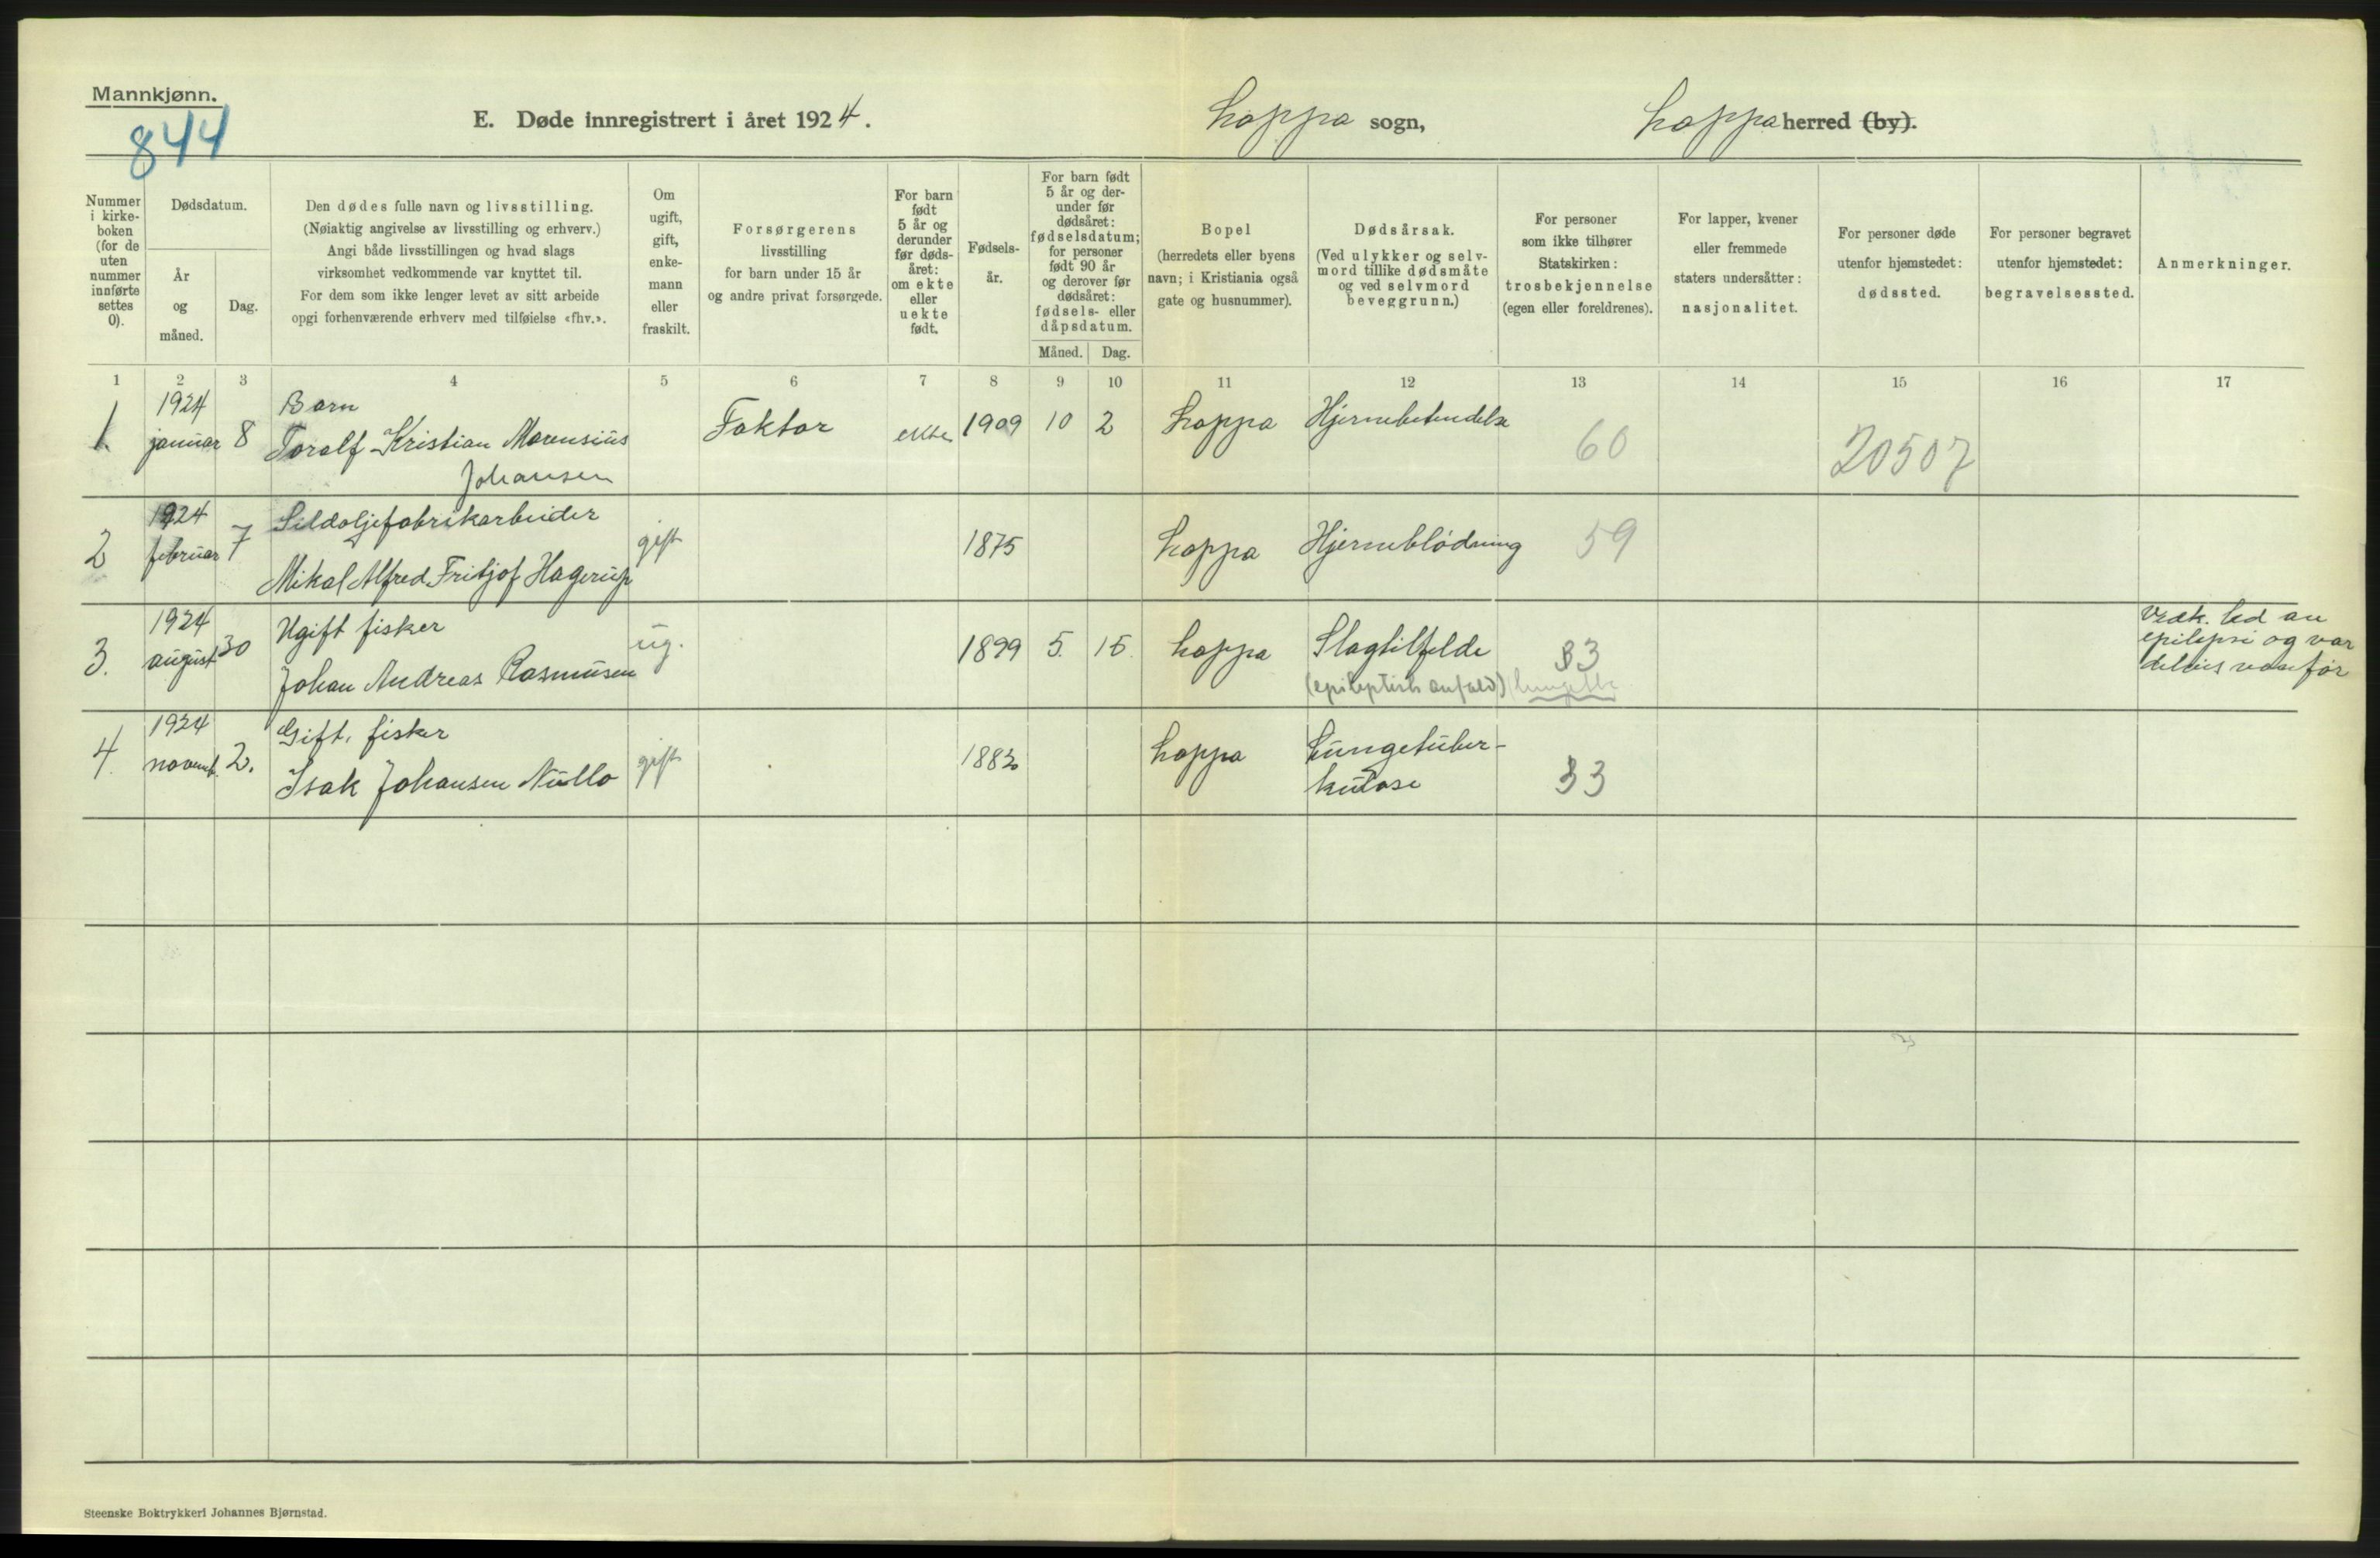 Mannkjønn.
844
E. Døde innregistrert i året 1924.
Loppa sogn,
Loppa herred (by).
Nummer i kirke- boken (for de uten nummer innførte settes 0).
Dødsdatum.
År og måned.
Dag.
Den dødes fulle navn og livsstilling.
(Nøiaktig angivelse av livsstilling og erhverv.)
Angi både livsstillingen og hvad slags
virksomhet vedkommende var knyttet til.
For dem som ikke lenger levet av sitt arbeide
opgi forhenværende erhverv med tilføielse «fhv.».
Om ugift, gift, enke- mann eller fraskilt.
Forsørgerens
livsstilling
for barn under 15 år
og andre privat forsørgede.
For barn født 5 år og derunder før døds- året: om ekte eller uekte født.
Fødsels- år.
For barn født 5 år og der- under før dødsåret: fødselsdatum; for personer født 90 år og derover før dødsåret: fødsels- eller dåpsdatum.
Måned.
Dag.
Bopel
(herredets eller byens
navn; i Kristiania også
gate og husnummer).
Dødsårsak.
(Ved ulykker og selv-
mord tillike dødsmåte
og ved selvmord
beveggrunn.)
For personer
som ikke tilhører
Statskirken:
trosbekjennelse
(egen eller foreldrenes).
For lapper, kvener
eller fremmede
staters undersåtter:
nasjonalitet.
For personer døde
utenfor hjemstedet:
dødssted.
For personer begravet
utenfor hjemstedet:
begravelsessted.
Anmerkninger.
1 2 3 4 5 6 7 8 9 10 11 12 13 14 15 16 17
1924 Barn
1. januar 8 Toralf Kristian Marensius Faktor ekte 1909 10 2 Loppa Hjernebetendelse 60 20507
Johansen
1924 Sildoljefabrikarbeider
2 februar 7 gift 1875 Loppa Hjerneblødning 59
Mikal Alfred Fritjof Hagerup
1924 Ugift fisker
3. august 30 ug. 1899 5. 15. Loppa Slagtilfelde 33
Johan Andreas Rasmussen (epileptisk anfald)
epilepsi og var
delvis vanfør
1924 Gift, fisker
4. novemb. 2. gift 1883 Loppa Lungetuber-
Isak Johansen Nullo kulose 33
Steenske Boktrykkeri Johannes Bjørnstad.